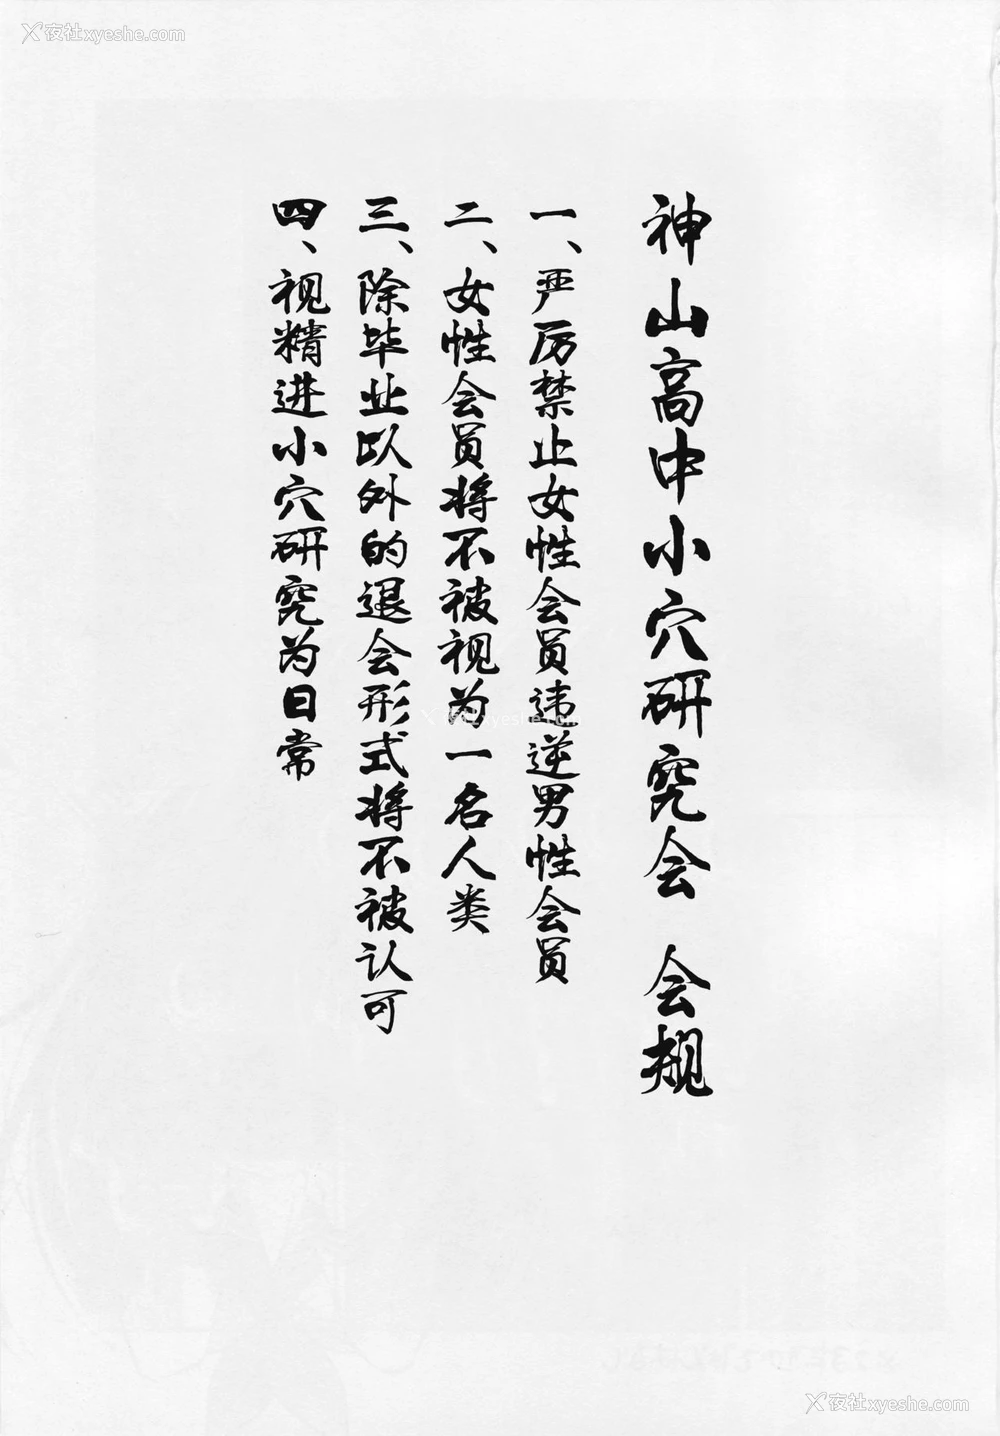 夜社xyeshe.com
神山高中小穴研究会 会规
一、严厉禁止女性会员违逆男性会员
二、女性会员将不被视为一名人类
三、除毕业以外的退会形式将不被认可
四、视精进小穴研究为日常
夜社xyeshe.com
夜社xyeshe.com